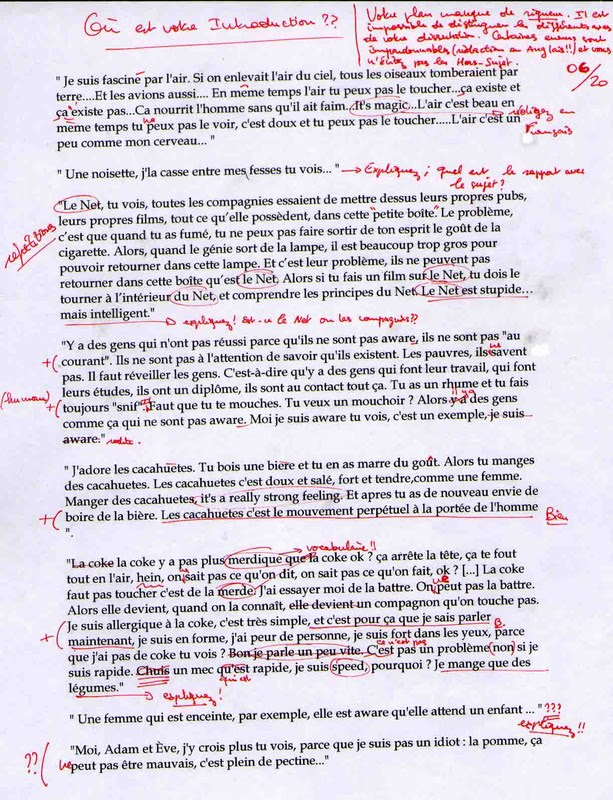 Où est votre Introduction ??
Votre plan manque de rigueur. Il est
impossible de distinguer les différents axes
de votre dissertation. Certaines erreurs sont
impardonnables (rédaction en Anglais!!) et vous
n'évitez pas les Hors-Sujet.
06/20
" Je suis fasciné par l'air. Si on enlevait l'air du ciel, tous les oiseaux tomberaient par
terre....Et les avions aussi.... En même temps l'air tu peux pas le toucher...ça existe et
ça existe pas...Ca nourrit l'homme sans qu'il ait faim...It's magic...L'air c'est beau en
rédigez en
Français
ne
même temps tu peux pas le voir, c'est doux et tu peux pas le toucher.....L'air c'est un
peu comme mon cerveau... "
" Une noisette, j'la casse entre mes fesses tu vois... "
Expliquez ; quel est le rapport avec
le sujet ?
"Le Net, tu vois, toutes les compagnies essaient de mettre dessus leurs propres pubs,
leurs propres films, tout ce qu'elle possèdent, dans cette "petite boîte". Le problème,
répétitions
c'est que quand tu as fumé, tu ne peux pas faire sortir de ton esprit le goût de la
cigarette. Alors, quand le génie sort de la lampe, il est beaucoup trop gros pour
pouvoir retourner dans cette lampe. Et c'est leur problème, ils ne peuvent pas
retourner dans cette boîte qu'est le Net. Alors si tu fais un film sur le Net, tu dois le
tourner à l'intérieur du Net, et comprendre les principes du Net. Le Net est stupide...
mais intelligent."
expliquez ! Est-ce le Net ou les compagnies ??
"Y a des gens qui n'ont pas réussi parce qu'ils ne sont pas aware, ils ne sont pas "au
ne
+ courant". Ils ne sont pas à l'attention de savoir qu'ils existent. Les pauvres, ils savent
pas. Il faut réveiller les gens. C'est-à-dire qu'y a des gens qui font leur travail, qui font
(humour)
leurs études, ils ont un diplôme, ils sont au contact tout ça. Tu as un rhume et tu fais
il y a
+ toujours "snif". Faut que tu te mouches. Tu veux un mouchoir ? Alors y a des gens
comme ça qui ne sont pas aware. Moi je suis aware tu vois, c'est un exemple, je suis
aware." redite.
" J'adore les cacahuetes. Tu bois une bière et tu en as marre du goût. Alors tu manges
des cacahuetes. Les cacahuetes c'est doux et salé, fort et tendre,comme une femme.
Manger des cacahuetes, it's a really strong feeling. Et apres tu as de nouveau envie de
+ boire de la bière. Les cacahuetes c'est le mouvement perpétuel à la portée de l'homme
Bien
".
vocabulaire !!
"La coke la coke y a pas plus merdique que la coke ok ? ça arrête la tête, ça te fout
tout en l'air, hein, on sait pas ce qu'on dit, on sait pas ce qu'on fait, ok ? [...] La coke
faut pas toucher c'est de la merde. J'ai essayer moi de la battre. On peut pas la battre.
ne
Alors elle devient, quand on la connaît, elle devient un compagnon qu'on touche pas.
Je suis allergique à la coke, c'est très simple, et c'est pour ça que je sais parler
B
+ maintenant, je suis en forme, j'ai peur de personne, je suis fort dans les yeux, parce
ce n'est pas
que j'ai pas de coke tu vois ? Bon je parle un peu vite. C'est pas un problème (non) si je
suis rapide. Chris un mec qu'est rapide, je suis speed, pourquoi ? Je mange que des
qui est
légumes."
expliquez !
" Une femme qui est enceinte, par exemple, elle est aware qu'elle attend un enfant ... "
???
expliquez !!
"Moi, Adam et Ève, j'y crois plus tu vois, parce que je suis pas un idiot : la pomme, ça
??
ne
peut pas être mauvais, c'est plein de pectine..."